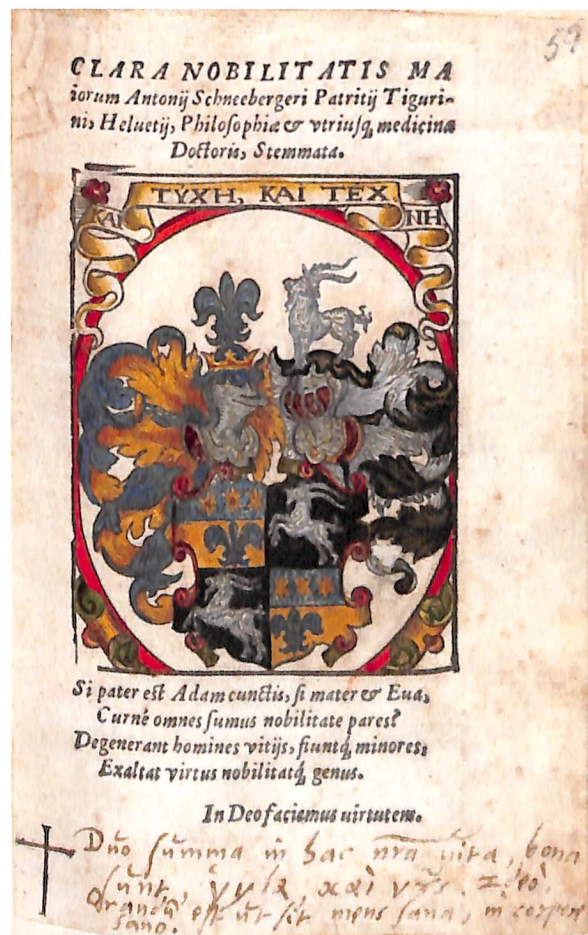 59
CLARA NOBILITATIS MA
iorum Antonij Schneebergeri Patritij Tiguri-
ni, Heluetij, Philosophiæ & vtriusq; medicinæ
Doctoris, Stemmata.
ΤΥΧΗ, ΚΑΙ ΤΕΧ
ΚΑΙ ΝΗ
Si pater est Adam cunctis, si mater & Eua,
Curnè omnes sumus nobilitate pares?
Degenerant homines vitijs, fiuntq; minores;
Exaltat virtus nobilitatq; genus.
In Deo faciemus uirtutem.
Duo summa in hac nra uita, bona
sunt, καὶ
Orandū est ut sit mens sana, in corpore
sano.